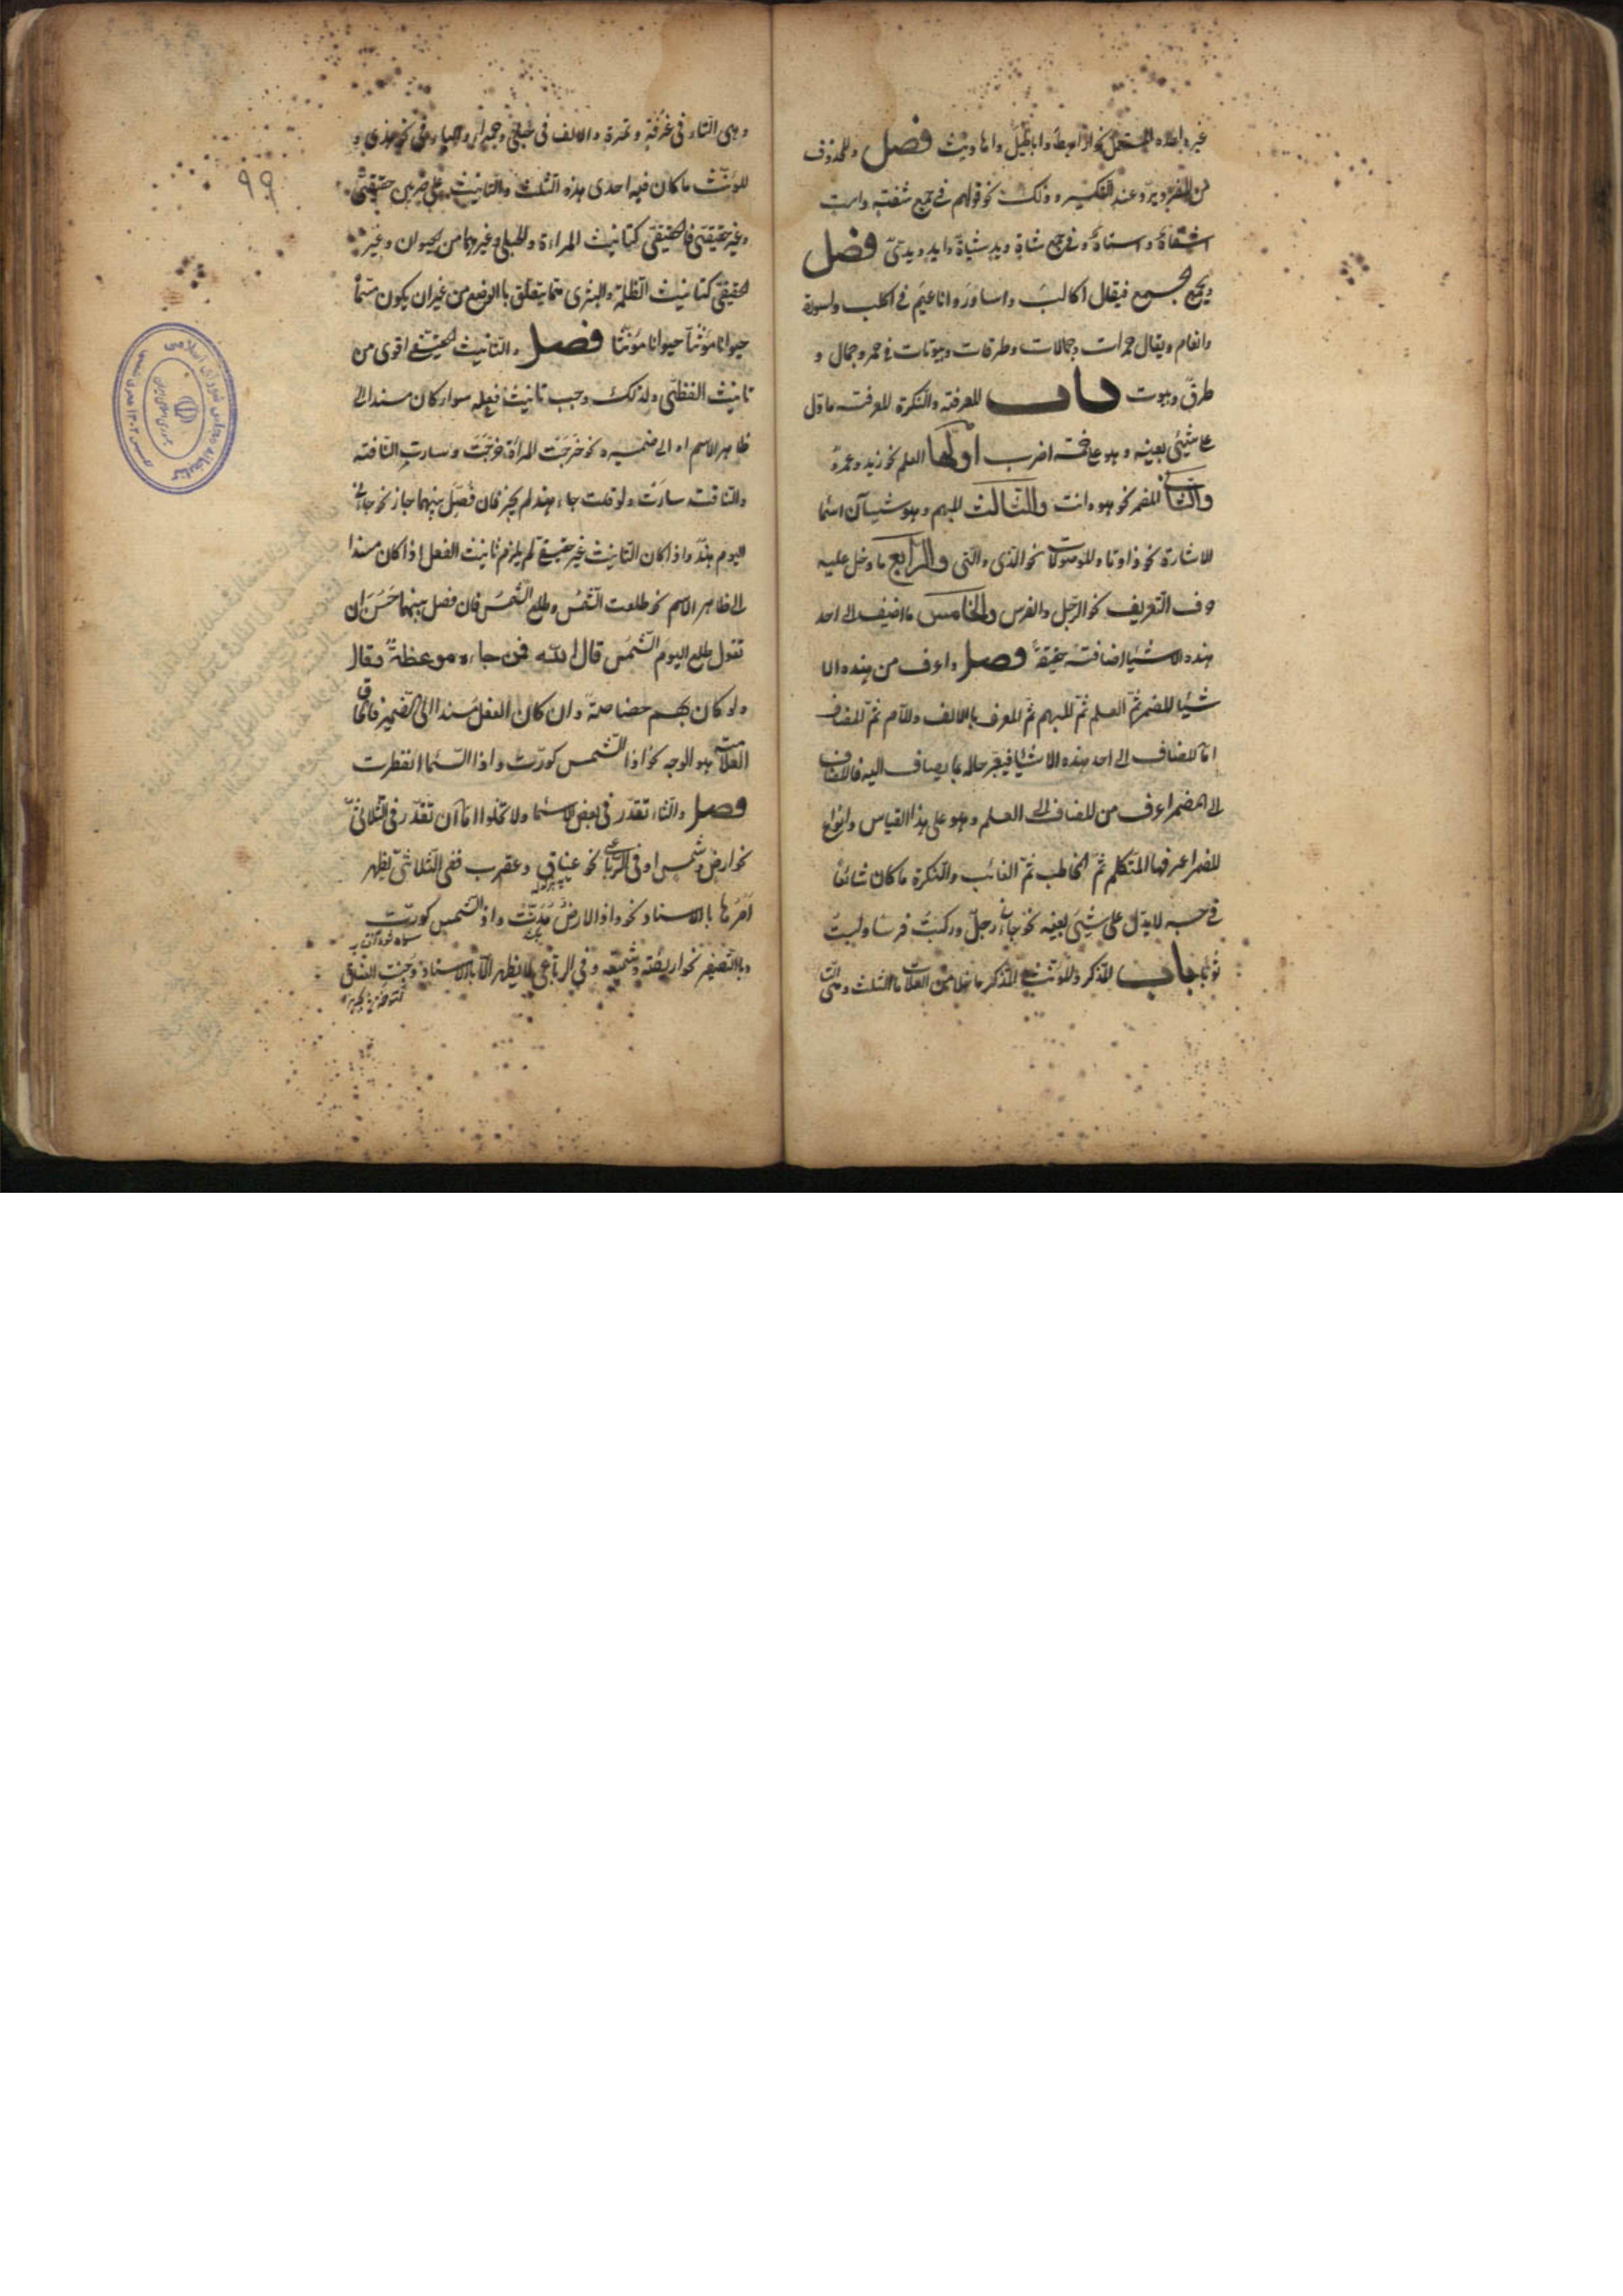 غير واحده المستعمل نحو اراهط واباطيل واحاديث فصل والمحذوف
من المفرد يرد عند التكسير وذلك نحو قولهم في جمع شفته واست
اشفاة واستاة وفي جمع شاة ويد شياة وايد ويدي فصل
ويجمع الجمع فيقال اكالب واساور واناعيم في اكلب واسورة
وانعام ويقال حمرات وجمالات وطرقات وبيوتات في حمر وجمال و
طرق وبيوت باب المعرفة والنكرة المعرفة ما دل
على شيئ بعينه وهو على خمسة اضرب اولها العلم نحو زيد وعمرو
والثاني المضمر نحو هو وانت والثالث المبهم وهو شيآن اسما
الاشارة نحو ذا وتا والموصولات نحو الذي والتي والرابع ما دخل عليه
حرف التعريف نحو الرجل والفرس والخامس ما اضيف الى احد
هذه الاشيا اضافة حقيقة فصل واعرف من هذه الا
شيا المضمر ثم العلم ثم المبهم ثم المعرف بالالف واللام ثم المضاف
اما المضاف الى احد هذه الاشيا فيعتبر حاله بما يضاف اليه فالمضاف
الى المضمر اعرف من المضاف الى العلم وهو على هذا القياس وانواع
المضمر اعرفها المتكلم ثم المخاطب ثم الغائب والنكرة ما كان شائعا
في جنسه لا يدل على شيئ بعينه نحو جاءني رجل وركبت فرسا ولبست
ثوبا باب المذكر والمؤنث المذكر ما خلا من العلامات الثلث
وهي التاء في غرفة وتمرة والالف في حبلى وحمراء والياء في نحو هذي و
المؤنث ما كان فيه احدى هذه الثلث والتانيث على ضربين حقيقي
وغير حقيقي فالحقيقي كتانيث المراءة والحبلى وغيرهما من الحيوان وغير
الحقيقي كتانيث الظلمة والبشرى مما يتعلق بالوضع من غير ان يكون
حيوانا مؤنثا حيوانا مؤنثا فصل والتانيث الحقيقي اقوى من
تانيث اللفظي ولذلك وجب تانيث فعله سواء كان مسندا الى
ظاهر الاسم او الى ضميره نحو خرجت المراة خرجت وسارت الناقة
والناقة سارت ولو قلت جاء هند لم يجز فان فصل بينهما جاز نحو جاءني
اليوم هند واذا كان التانيث غير حقيقي لم يلزم تانيث الفعل اذا كان مسندا
الى ظاهر الاسم نحو طلعت الشمس وطلع الشمس فان فصل بينهما حسن ان
تقول طلع اليوم الشمس قال الله فمن جاءه موعظة وقال
ولو كان بهم خصاصة وان كان الفعل مسندا الى الضمير فالحاق
العلامة هو الوجه نحو اذا الشمس كورت واذا السما انفطرت
فصل والتاء تقدر في بعض الاسما ولا تخلوا اما ان تقدر في الثلاثي
نحو ارض وشمس او في الرباعي نحو عناق وعقرب ففي الثلاثي يظهر
امرها بالاسناد نحو واذا الارض مدت واذا الشمس كورت
وبالتصغير نحو اريضة وشميسة وفي الرباعي لا يظهر الا بالاسناد
٩٩